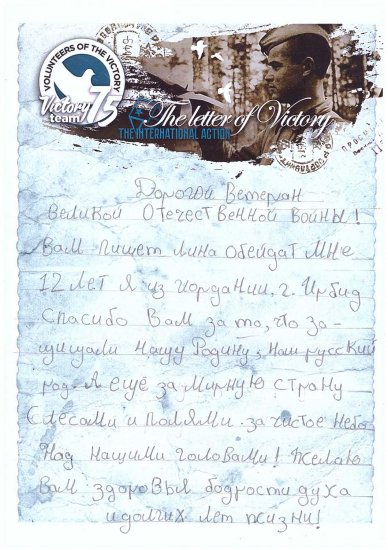 VOLUNTEERS OF THE VICTORY
Victory 75
team
The letter of Victory
THE INTERNATIONAL ACTION
Дорогой Ветеран
Великой Отечественной Войны!
Вам пишет Лина Обейдат мне
12 лет я из иордании, г. Ирбид
Спасибо Вам за то, что за-
щищали нашу Родину, наш русский
род. А ещё за мирную страну
с лесами и полями. за чистое небо
Над нашими головами! Желаю
Вам здоровья бодрости духа
и долгих лет жизни!